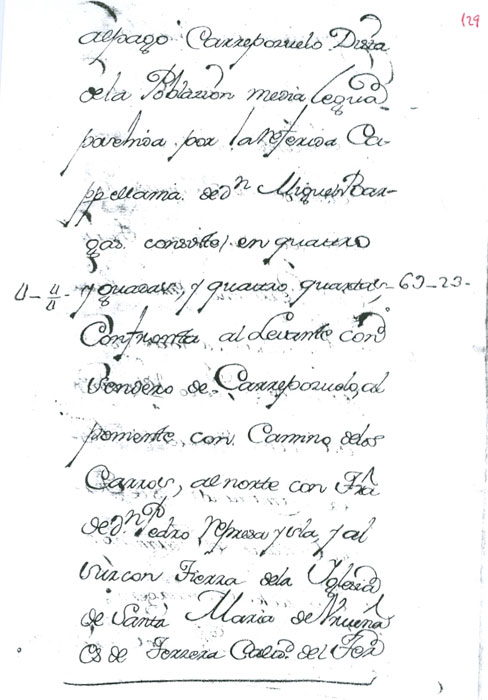 129
al pago Carreporuelo Dizta
de la Poblazion media legua
parttida por la referida Ca-
ppellania de dn Miguel Bar-
gas consiste, en quattro
4-4/4- yguadas, y quatro quartas,-63-23-
Confronta al Levante con
Sendero de Carreporuelo, al
poniente, con Camino de los
Carros, al norte con
de dn Pedro y al
Sur con Tierra de la Yglesia
de Santa Maria de
es de Terzera Calid. del